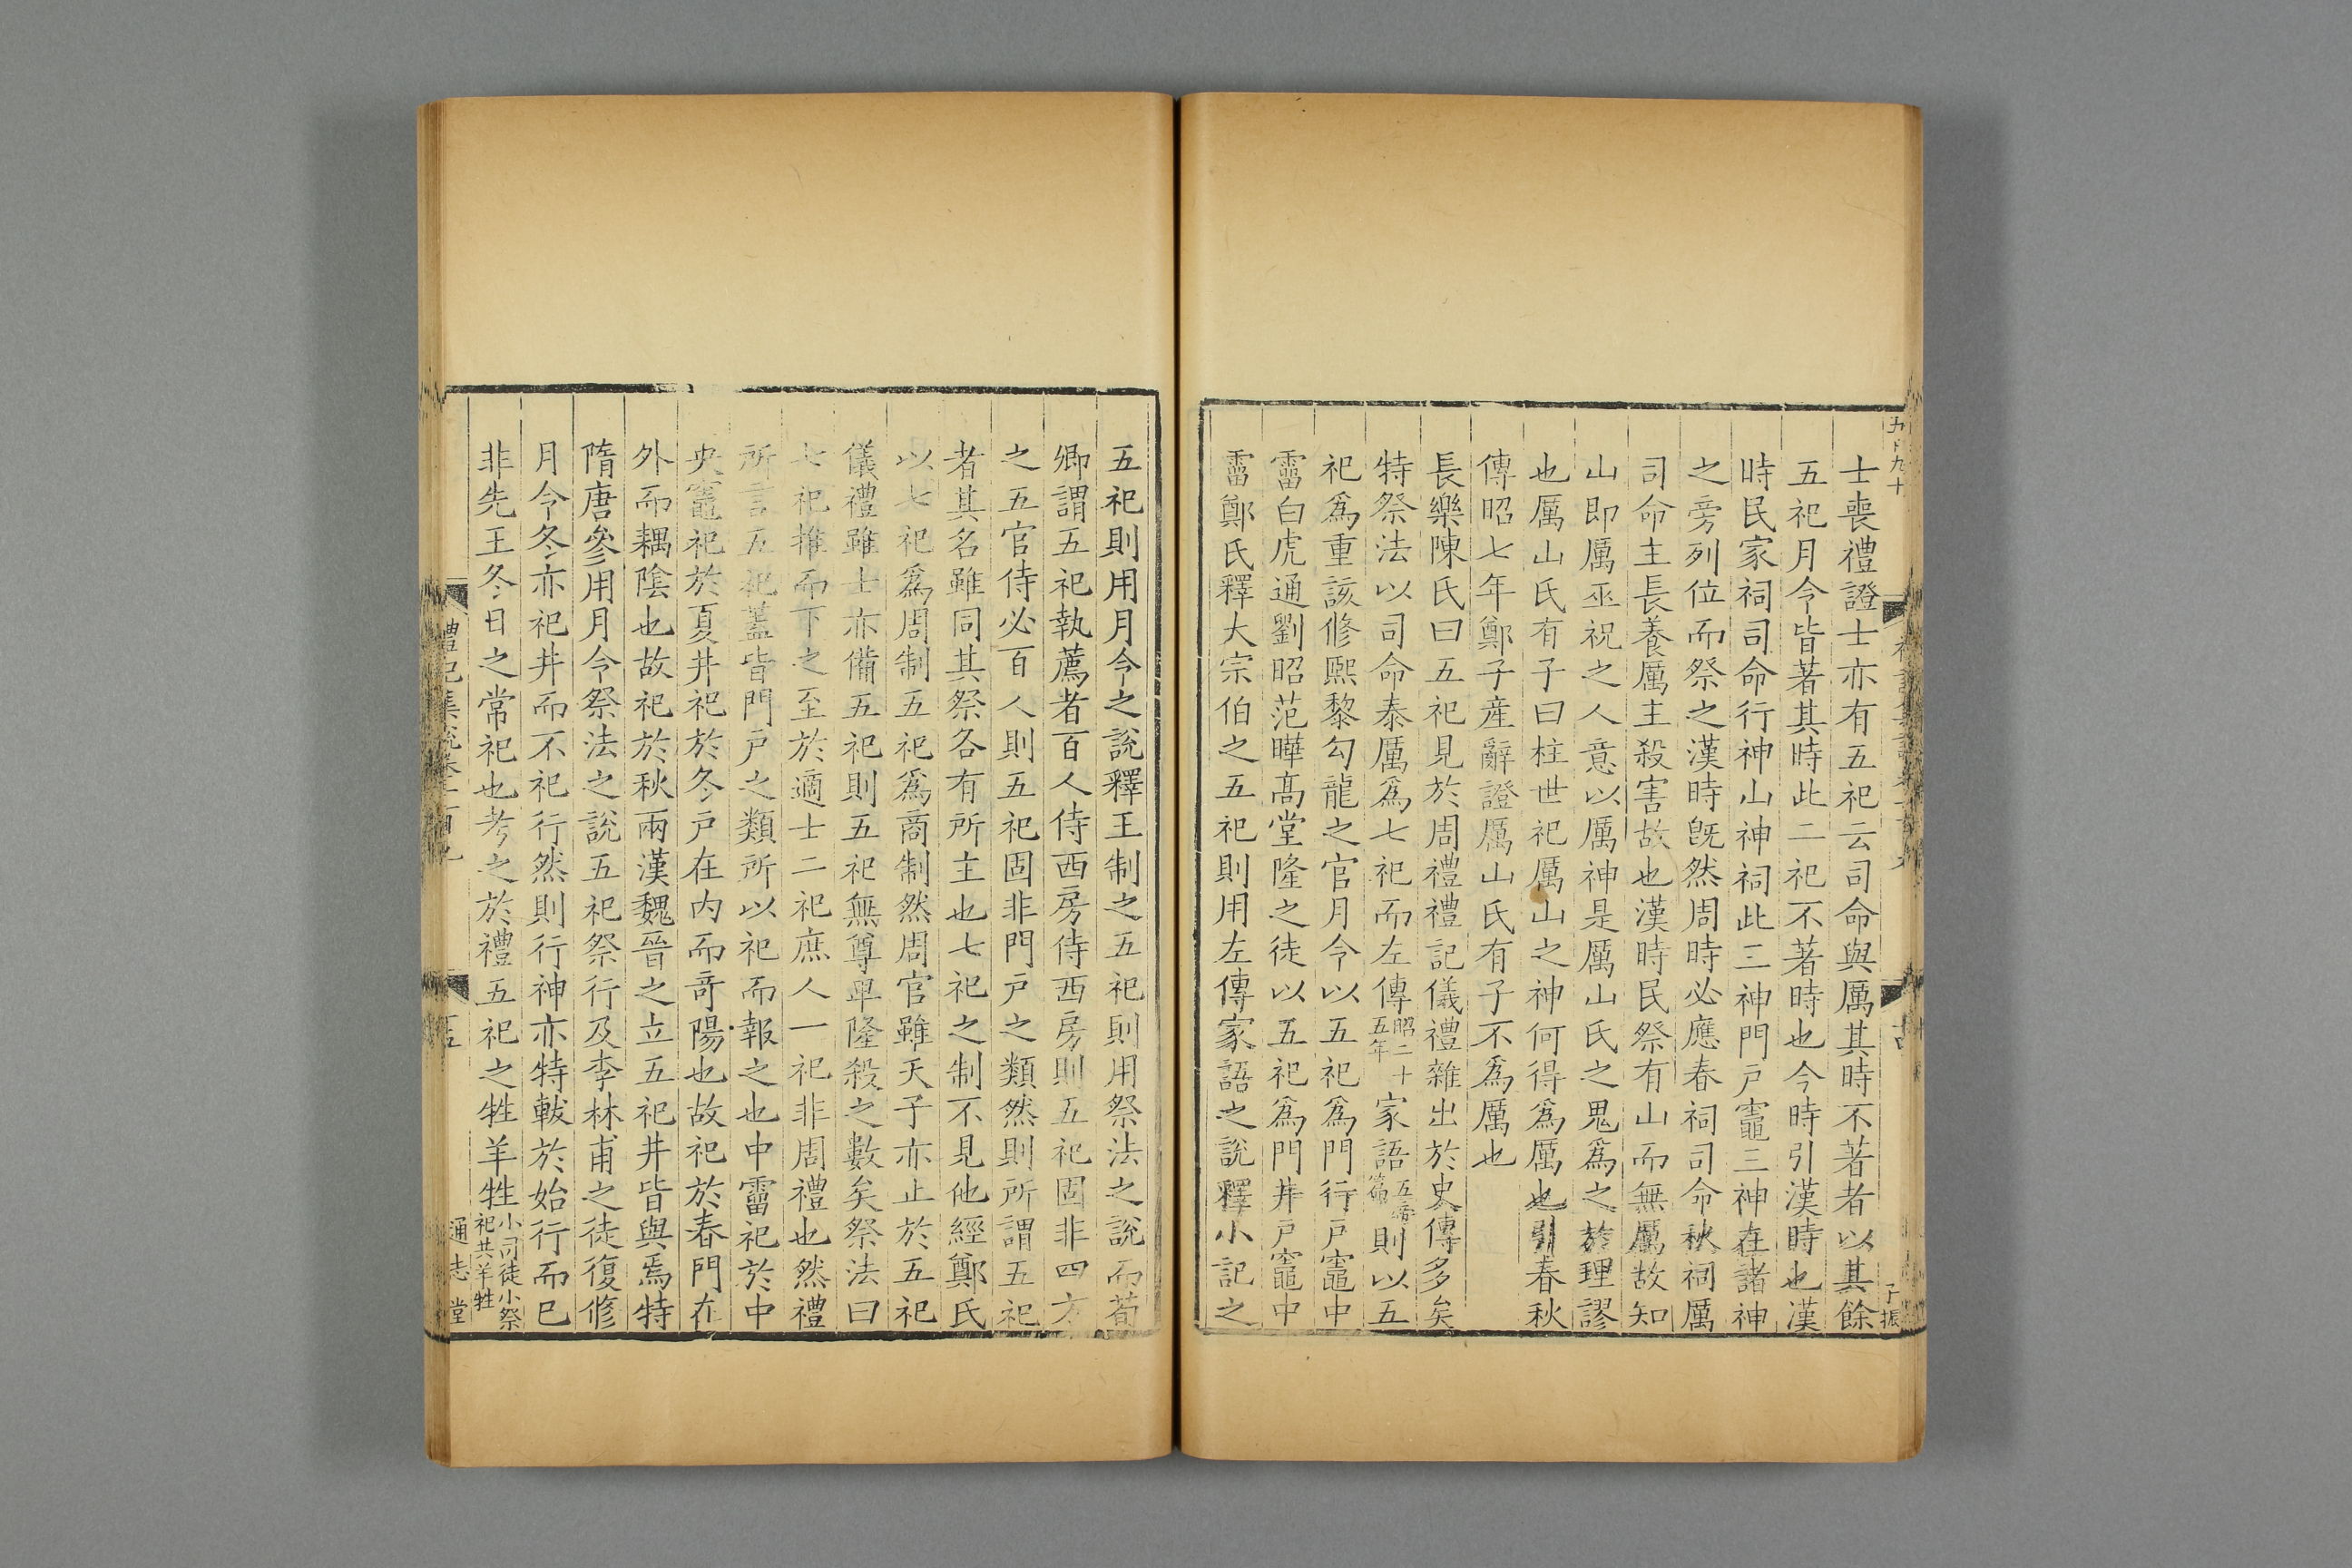 士喪禮證士亦有五祀云司命與厲其時不著者以其餘
五祀月令皆著其時此二祀不著時也今時引漢時也漢
時民家祠司命行神山神祠此三神門戸竈三神在諸神
之旁列位而祭之漢時旣然周時必應春祠司命秋祠厲
司命主長養厲主殺害故也漢時民祭有山而無厲故知
山即厲巫祝之人意以厲神是厲山氏之鬼爲之於理謬
也厲山氏有子曰柱世祀厲山之神何得爲厲也引春秋
傳昭七年鄭子産辭證厲山氏有子不爲厲也
長樂陳氏曰五祀見於周禮禮記儀禮雜出於史傳多矣
特祭法以司命泰厲爲七祀而左傳昭二十五年家語五帝篇則以五
祀爲重該修熙黎勾龍之官月令以五祀爲門行戸竈中
霤白虎通劉昭范曄髙堂隆之徒以五祀爲門井戸竈中
霤鄭氏釋大宗伯之五祀則用左傳家語之説釋小記之
五祀則用月令之說釋王制之五祀則用祭法之說而荀
卿謂五祀執薦者百人侍西房侍西房則五祀固非四方
之五官侍必百人則五祀固非門戸之類然則所謂五祀
者其名雖同其祭各有所主也七祀之制不見他經鄭氏
以七祀爲周制五祀爲商制然周官雖天子亦止於五祀
儀禮雖士亦備五祀則五祀無尊卑隆殺之數矣祭法曰
七祀推而下之至於適士二祀庶人一祀非周禮也然禮
所言五祀蓋皆門戸之類所以祀而報之也中霤祀於中
央竈祀於夏井祀於冬戸在内而奇陽也故祀於春門在
外而耦陰也故祀於秋兩漢魏晉之立五祀井皆與焉特
隋唐參用月令祭法之說五祀祭行及李林甫之徒復修
月令冬亦祀井而不祀行然則行神亦特軷於始行而已
非先王冬日之常祀也考之於禮五祀之牲羊牲小司徒小祭祀共羊牲
通志堂